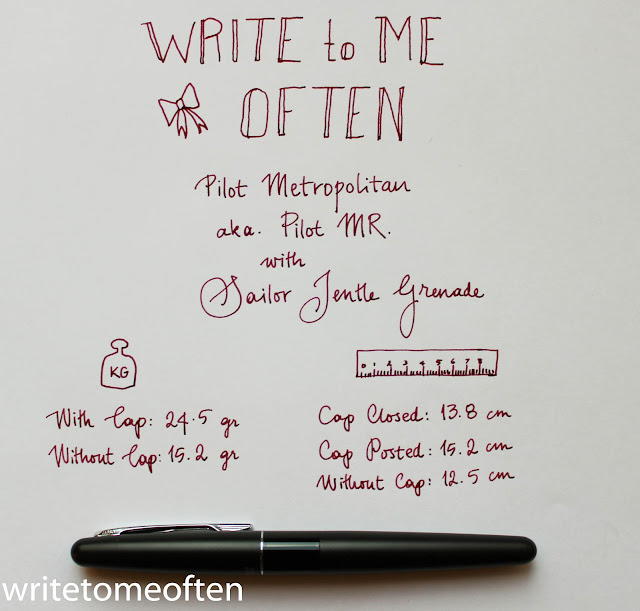 WRITE to ME
OFTEN
Pilot Metropolitan
aka. Pilot MR.
with
Sailor Jentle Grenade
KG
0 1 2 3 4 5 6 7 8
With Cap: 24.5 gr
Without Cap: 15.2 gr
Cap Closed: 13.8 cm
Cap Posted: 15.2 cm
Without Cap: 12.5 cm
writetomeoften